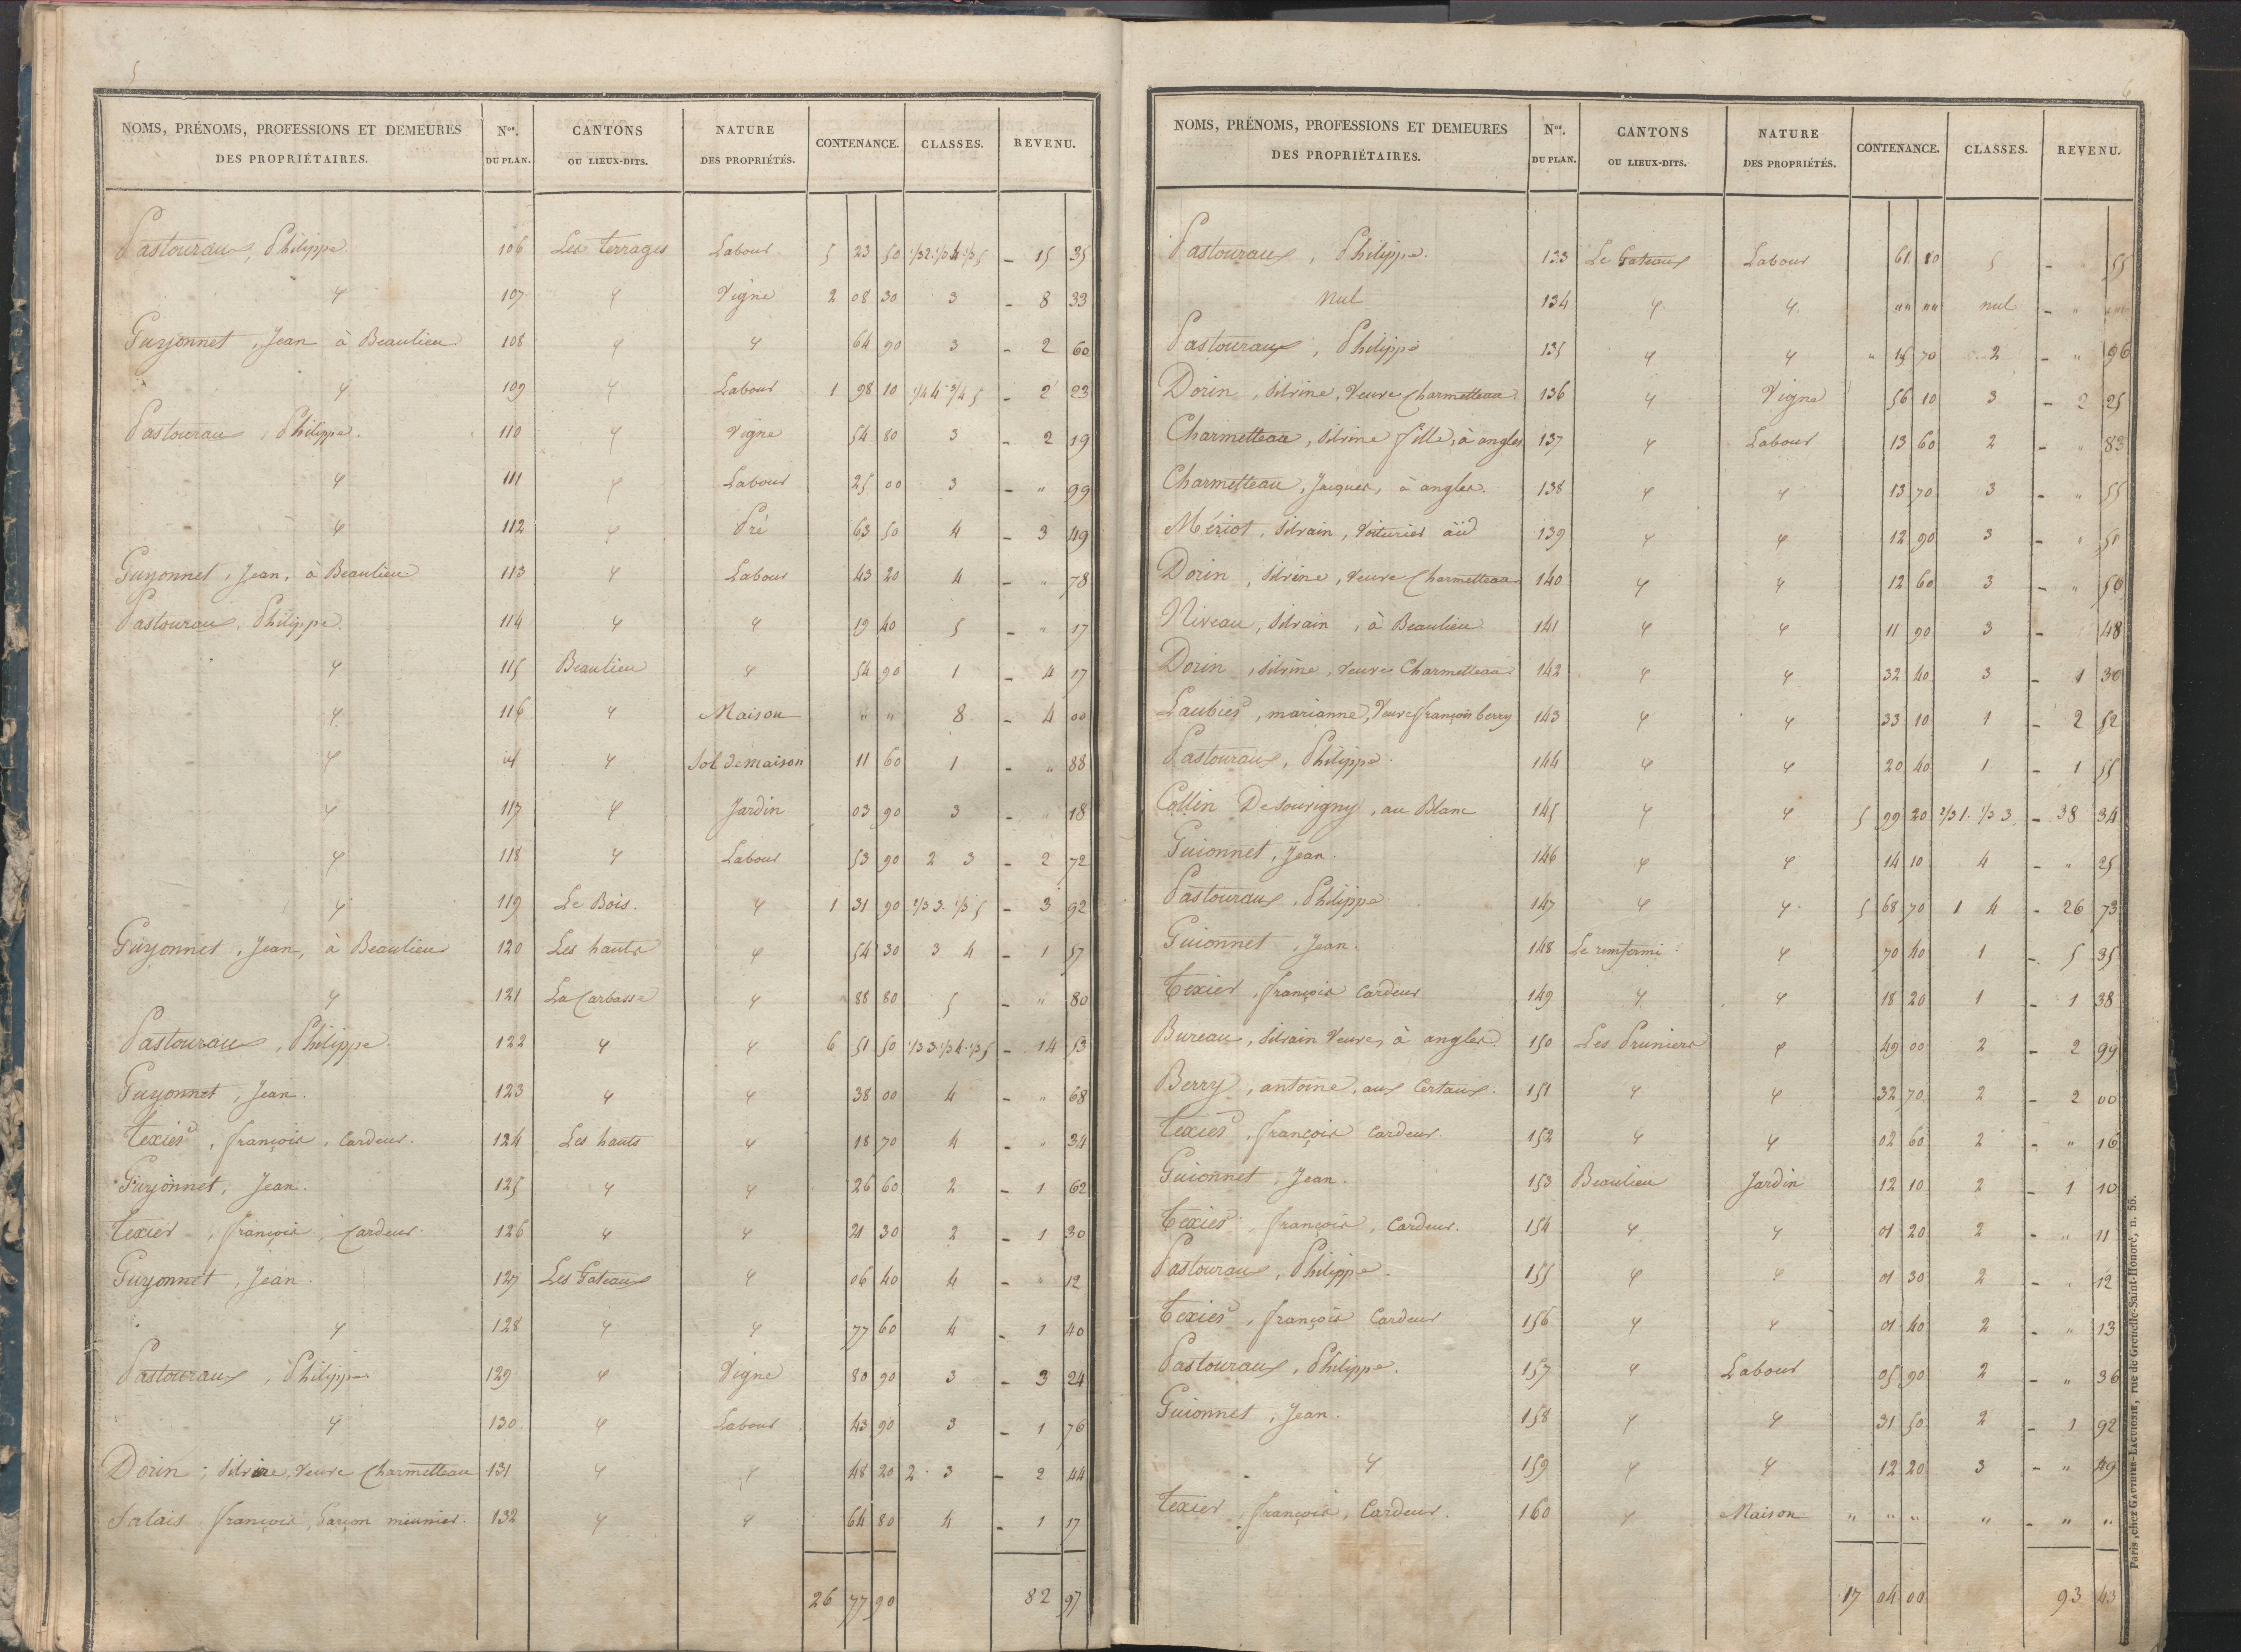 5
NOMS, PRÉNOMS, PROFESSIONS ET DEMEURES DES PROPRIÉTAIRES. Nos. DU PLAN. CANTONS OU LIEUX-DITS. NATURE DES PROPRIÉTÉS. CONTENANCE. CLASSES. REVENU.
Pastouraux, Philippe 106 Les terrages Labour 5 23 50 1/3 2. 1/3 4. 1/3 5 - 15 35
" 107 " Vigne 2 08 30 3 - 8 33
Guyonnet, Jean à Beaulieu 108 " " 64 90 3 - 2 60
" 109 " Labour 1 98 10 1/4 4 - 3/4 5 - 2 23
Pastouraux, Philippe. 110 " Vigne 54 80 3 - 2 19
" 111 " Labour 25 00 3 - " 99
" 112 " Pré 63 50 4 - 3 49
Guyonnet, Jean, à Beaulieu 113 " Labour 43 20 4 - " 78
Pastouraux, Philippe. 114 " " 19 40 5 - " 17
" 115 Beaulieu " 54 90 1 - 4 17
" 116 " Maison " " 8 - 4 00
" id " Sol de maison 11 60 1 - " 88
" 117 " Jardin 03 90 3 - " 18
" 118 " Labour 53 90 2 3 - 2 72
" 119 Le Bois. " 1 31 90 2/3 3. 1/3 5 - 3 92
Guyonnet, Jean, à Beaulieu 120 Les hauts " 54 30 3 4 - 1 57
" 121 La Carbasse " 88 80 5 - " 80
Pastouraux, Philippe 122 " " 6 51 50 1/3 3. 1/3 4. 1/3 5 - 14 53
Guyonnet, Jean. 123 " " 38 00 4 - " 68
Texier, françois, Cardeur. 124 Les hauts " 18 70 4 - " 34
Guyonnet, Jean. 125 " " 26 60 2 - 1 62
Texier, françois, Cardeur. 126 " " 21 30 2 - 1 30
Guyonnet, Jean. 127 Les Gateaux " 06 40 4 - " 12
" 128 " " 77 60 4 - 1 40
Pastouraux, Philippe 129 " Vigne 80 90 3 - 3 24
" 130 " Labour 43 90 3 - 1 76
Dorin, Silvine, Veuve Charmetteau 131 " " 48 20 2. 3 - 2 44
françois, Garçon meunier. 132 " " 64 80 4 - 1 17
26 77 90 82 97
6
NOMS, PRÉNOMS, PROFESSIONS ET DEMEURES DES PROPRIÉTAIRES. Nos. DU PLAN. CANTONS OU LIEUX-DITS. NATURE DES PROPRIÉTÉS. CONTENANCE. CLASSES. REVENU.
Pastouraux, Philippe. 133 Le Gateaux Labour 61 80 5 - 55
Nul 134 " " "" "" nul - " ""
Pastouraux, Philippe 135 " " " 15 70 2 - " 96
Dorin, Silvine, Veuve Charmetteau. 136 " Vigne 56 10 3 - 2 25
Charmetteau, Silvine fille, à angles 137 " Labour 13 60 2 - " 83
Charmetteau, Jacques, à angles. 138 " " 13 70 3 - " 55
Mériot, Silvain, Voiturier àïd 139 " " 12 90 3 - " 51
Dorin, Silvine, Veuve Charmetteau 140 " " 12 60 3 - " 50
Niveau, Silvain, à Beaulieu 141 " " 11 90 3 - 48
Dorin, Silvine, Veuve Charmetteau 142 " " 32 40 3 - 1 30
Laubier, marianne, Veuve françois berry 143 " " 33 10 1 - 2 52
Pastouraux, Philippe. 144 " " 20 40 1 - 1 55
Collin Desouvigny, au Blanc 145 " " 5 99 20 2/3 1. 1/3 3 - 38 34
Guionnet, Jean. 146 " " 14 10 4 - " 25
Pastouraux, Philippe 147 " " 5 68 70 1 4 - 26 73
Guionnet, Jean. 148 Le remfermi " 70 40 1 - 5 35
Texier, françois Cardeur 149 " " 18 20 1 - 1 38
Bureau, Silvain Veuve, à angles. 150 Les Pruniers " 49 00 2 - 2 99
Berry, antoine, aux Certaux. 151 " " 32 70 2 - 2 00
Texier, françois Cardeur. 152 " " 02 60 2 - " 16
Guionnet, Jean. 153 Beaulieu Jardin 12 10 2 - 1 10
Texier, françois, Cardeur. 154 " " 01 20 2 - " 11
Pastouraux, Philippe. 155 " " 01 30 2 - " 12
Texier, françois Cardeur 156 " " 01 40 2 - " 13
Pastouraux, Philippe. 157 " Labour 05 90 2 - " 36
Guionnet, Jean. 158 " " 31 50 2 - 1 92
" 159 " " 12 20 3 - " 49
Texier, françois, Cardeur. 160 " Maison " " " " - " "
17 04 00 93 43
Paris, chez GAUTHIER-LAGUIONIE, rue de Grenelle-Saint-Honoré, n. 55.